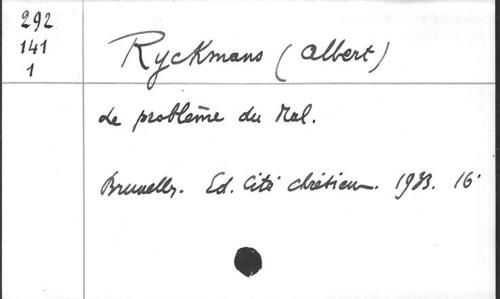 292
141
1
Ryckmans (Albert)
Le problème du Mal.
Bruxelles. Ed. Cité chrétienne. 1933. 16°